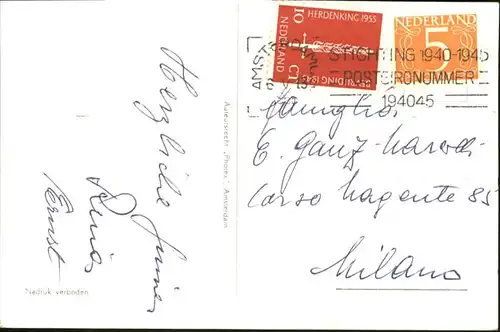 Herzliche
Ernst
Nadruk verboden
Auteursrecht „Photex", Amsterdam
HERDENKING 1955
BEVRIJDING 1945
10 CT
NEDERLAND
NEDERLAND
5
STICHTING 1940-1945
POSTGIRONUMMER
194045
E. Ganz-
Corso Magenta 85
Milano